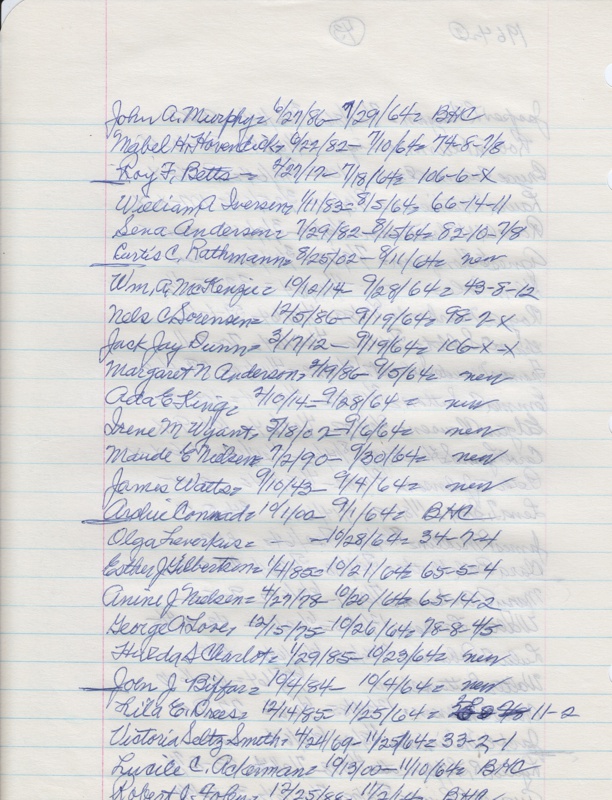 John A. Murphy = 6/27/86 - 7/29/64 = BHC
Mabel H. Hovendick = 6/22/82 - 7/10/64 = 74-8-7/8
Roy F. Betts - 5/27/17 - 7/18/64 = 106-6-X
William A Iversen = 1/11/83 = 8/5/64 = 66-14-11
Sena Anderson = 7/29/82 - 8/15/64 = 82-10-7/8
Curtis C. Rathmann = 8/25/02 - 8/11/64 = new
Wm. A. McKenzie = 10/12/14 - 9/28/64 = 43-8-12
Nels C. Sorensen = 12/5/86 - 9/19/64 = 98-2-X
Jack Jay Dunn = 3/17/12 - 9/19/64 = 106-X-X
Margaret N Anderson = 2/19/86 - 9/5/64 = new
Ada E King = 2/10/14 - 9/28/64 = new
Irene M Wyant = 5/18/02 - 9/6/64 = new
Maude E Nielsen = 7/2/90 - 9/30/64 = new
James Watts = 9/10/43 - 9/4/64 = new
Archie Conrad = 10/1/00 - 9/1/64 = BHC
Olga Leverkus = - - 10/28/64 = 34-7-4
Esther J Gilbertson = 1/4/85 = 10/21/64 = 65-5-4
Anine J Nielsen = 4/27/78 - 10/20/64 = 65-14-2
George A Love, 12/15/75 - 10/26/64 = 78-8-4/5
Hulda S Charlot = 1/29/85 - 10/23/64 = new
John J. Biffar = 10/4/84 - 10/4/64 = new
E. Drees = 12/14/85 - 11/25/64 = 11-2
Victoria Seltz Smith = 4/24/69 - 11/25/64 = 33-2-1
Lucile C. Ackerman = 10/13/00 - 11/10/64 = BHC
Robert J. 12/25/88 - 11/2/64 = BHC